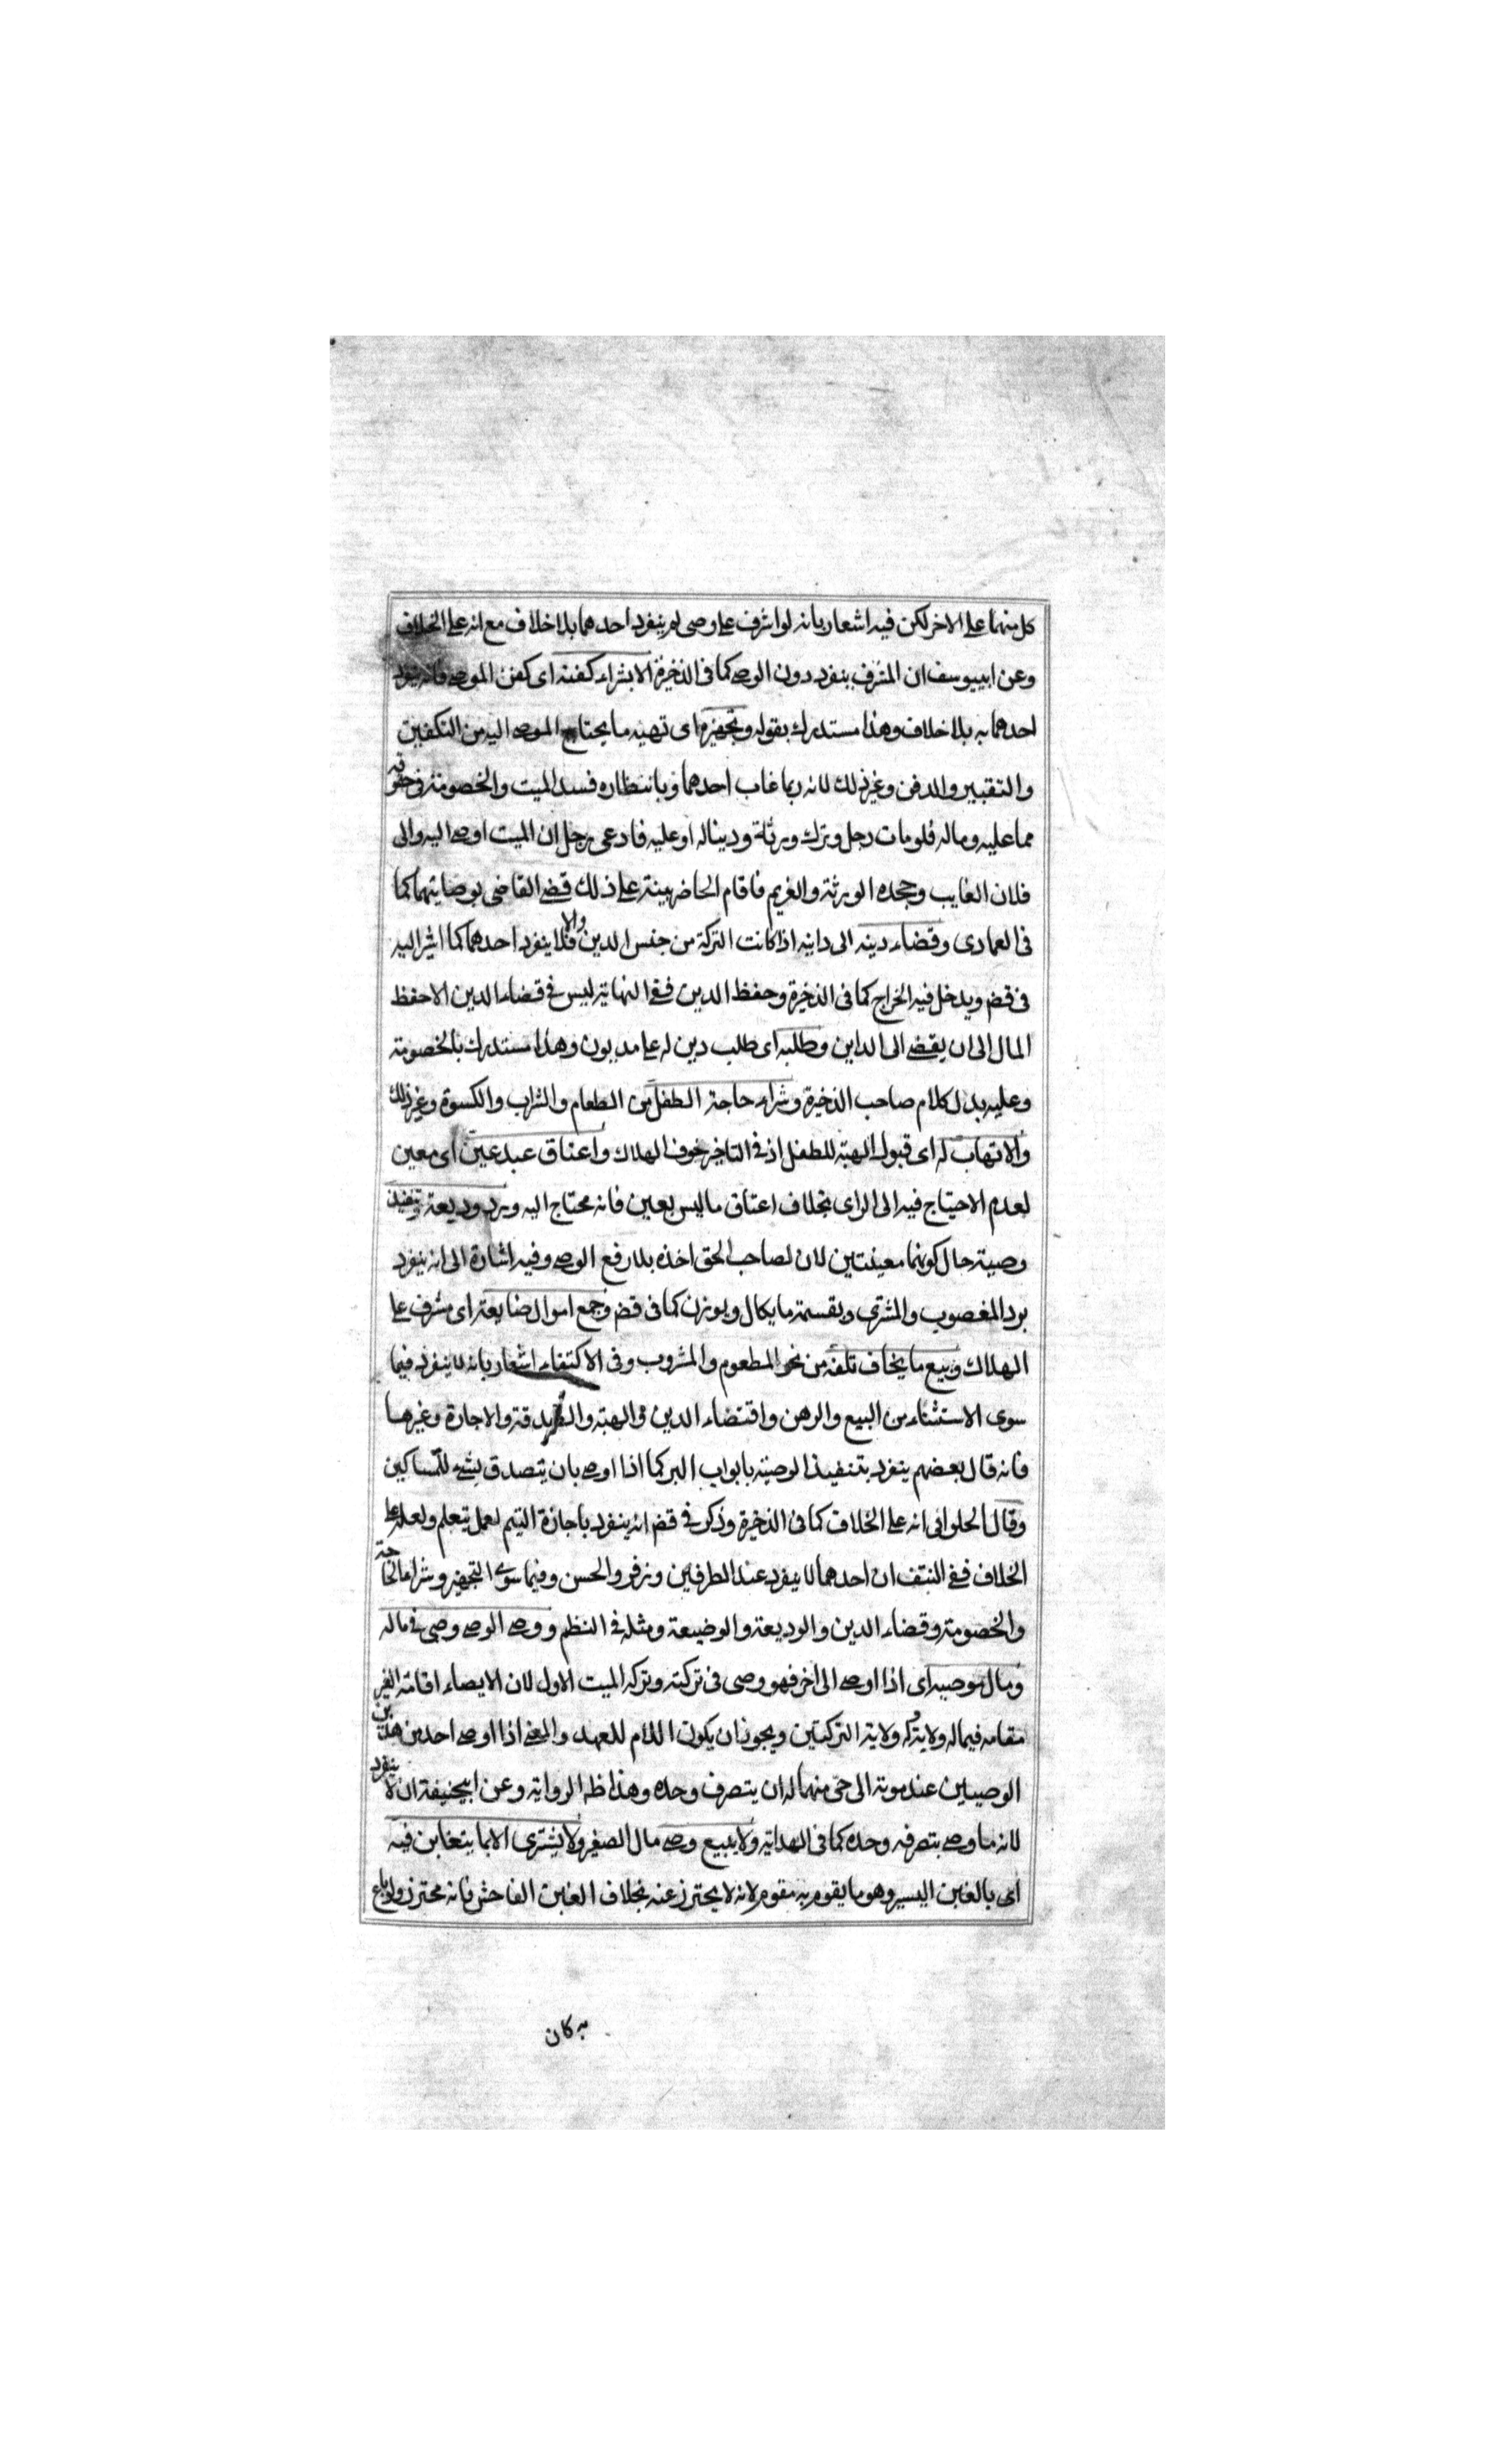 كل منهما على الاخر لكن فيه اشعار بانه لو اشرف على وصى لم ينفرد احدهما بلا خلاف مع انه على الخلاف
وعن ابييوسف ان المشرف ينفرد دون الوصى كما فى الذخيرة الا بشراء كفنه اى كفن الموصى فانه ينفرد
احدهما به بلا خلاف وهذا مستدرك بقوله وتجهيزه اى تهيئة ما يحتاج الموصى اليه من التكفين
والتقبير والدفن وغير ذلك لانه ربما غاب احدهما وبانتظاره فسد الميت والخصومة فى حقوقه
مما عليه وماله فلو مات رجل وترك ورثة ودينا له او عليه فادعى رجل ان الميت اوصى اليه والى
فلان الغايب وجحده الورثة والغريم فاقام الحاضر بينة على ذلك قضى القاضى بوصايتهما كما
فى العمادى وقضاء دينه الى داينه اذا كانت التركة من جنس الدين والا فلا ينفرد احدهما كما اشير اليه
فى قض ويدخل فيه الخراج كما فى الذخيرة وحفظ الدين ففى النهاية ليس فى قضاء الدين الا حفظ
المال الى ان يقضى الى الداين وطلبه اى طلب دين له على مديون وهذا مستدرك بالخصومة
وعليه يدل كلام صاحب الذخيرة وشراء حاجة الطفل من الطعام والشراب والكسوة وغير ذلك
والاتهاب له اى قبول الهبة للطفل اذ فى التاخير خوف الهلاك واعتاق عبد عين اى معين
لعدم الاحتياج فيه الى الراى بخلاف اعتاق ما ليس بعين فانه محتاج اليه ورد وديعة وتنفيذ
وصية حال كونهما معينتين لان لصاحب الحق اخذه بلا رفع الوصى وفيه اشارة الى انه ينفرد
برد المغصوب والمشترى وبقسمة ما يكال ويوزن كما فى قض وجمع اموال ضايعة اى مشرف على
الهلاك وبيع ما يخاف تلفه من نحو المطعوم والمشروب وفى الاكتفاء اشعار بانه لا ينفرد فيما
سوى الاستثناء من البيع والرهن واقتضاء الدين والهبة والصدقة والاجارة وغيرها
فانه قال بعضهم ينفرد بتنفيذ الوصية بابواب البر كما اذا اوصى بان يتصدق بشئ للمساكين
وقال الحلوانى انه على الخلاف كما فى الذخيرة وذكر فى قض انه ينفرد باجازة اليتيم لعمل يتعلم ولعله على
الخلاف ففى النتف ان احدهما لا ينفرد عند الطرفين وزفر والحسن وفيما سوى التجهيز وشراء الحاجة
والخصومة وقضاء الدين والوديعة والوضيعة ومثله فى النظم ووصى الوصى وصى فى ماله
ومال موصيه اى اذا اوصى الى اخر فهو وصى فى تركته وتركة الميت الاول لان الايصاء اقامة الغير
مقامه فيما له ولايته وله ولاية التركتين ويجوز ان يكون اللام للعهد والمعنى اذا اوصى احد من هذين
الوصيين عند موته الى حى منهما له ان يتصرف وحده وهذا ظه الرواية وعن ابيحنيفة ان لا ينفرد
لانه ما اوصى بتصرفه وحده كما فى الهداية ولا يبيع وصى مال الصغير ولا يشترى الا بما يتغابن فيه
اى بالغبن اليسير وهو ما يقوم به مقوم لانه لا يحترز عنه بخلاف الغبن الفاحش فانه محترز ولو باع
به كان